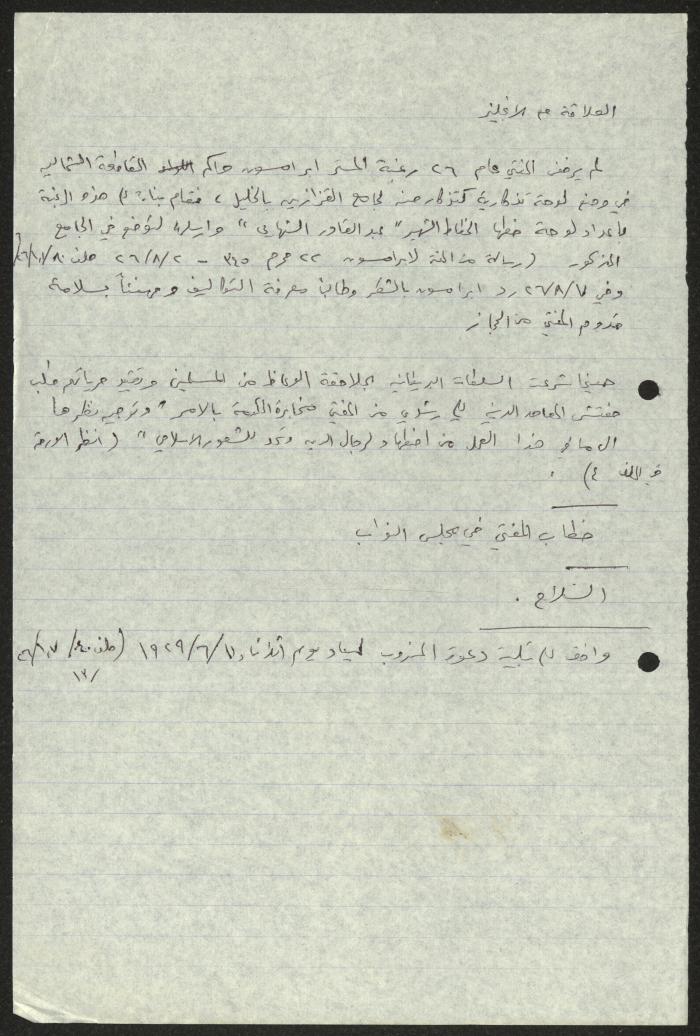 العلاقة مع الانجليز
لم يرفض المفتي عام ٢٦ رغبة المستر ابرامسون حاكم القاطعة الشمالية
في وضع لوحة تذكارية كتذكار منه لجامع القزازين بالخليل ، فقام بناء على هذه الرغبة
باعداد لوحة خطها الخطاط الشهير " عبد القادر الشهابي " وارسلها لتوضع في الجامع
المذكور ( رسالة من المفتي لابرامسون ٢٢ محرم ٣٤٥ - ٢/٨/٢٦ ملف
وفي ٧/٨/٢٦ رد ابرامسون بالشكر وطالباً معرفة التكاليف ومهنئاً بسلامة
قدوم المفتي من الحجاز
حينما شرعت السلطات البريطانية بملاحقة الوعاظ من المسلمين وتقييد حرياتهم طلب
مفتش المعاهد الدينية من المفتي مخابرة الحكومة بالامر " وتوجيه نظرها
الى ما في هذا العمل من اضطهاد لرجال الدين وتحد للشعور الاسلامي " ( انظر الورقة
في الملف ٤ ) .
خطاب المفتي في مجلس النواب
السلاح .
وافق على تلبية دعوة المندوب يوم الثلاثاء ١٩٢٩/٦/ ( ملف